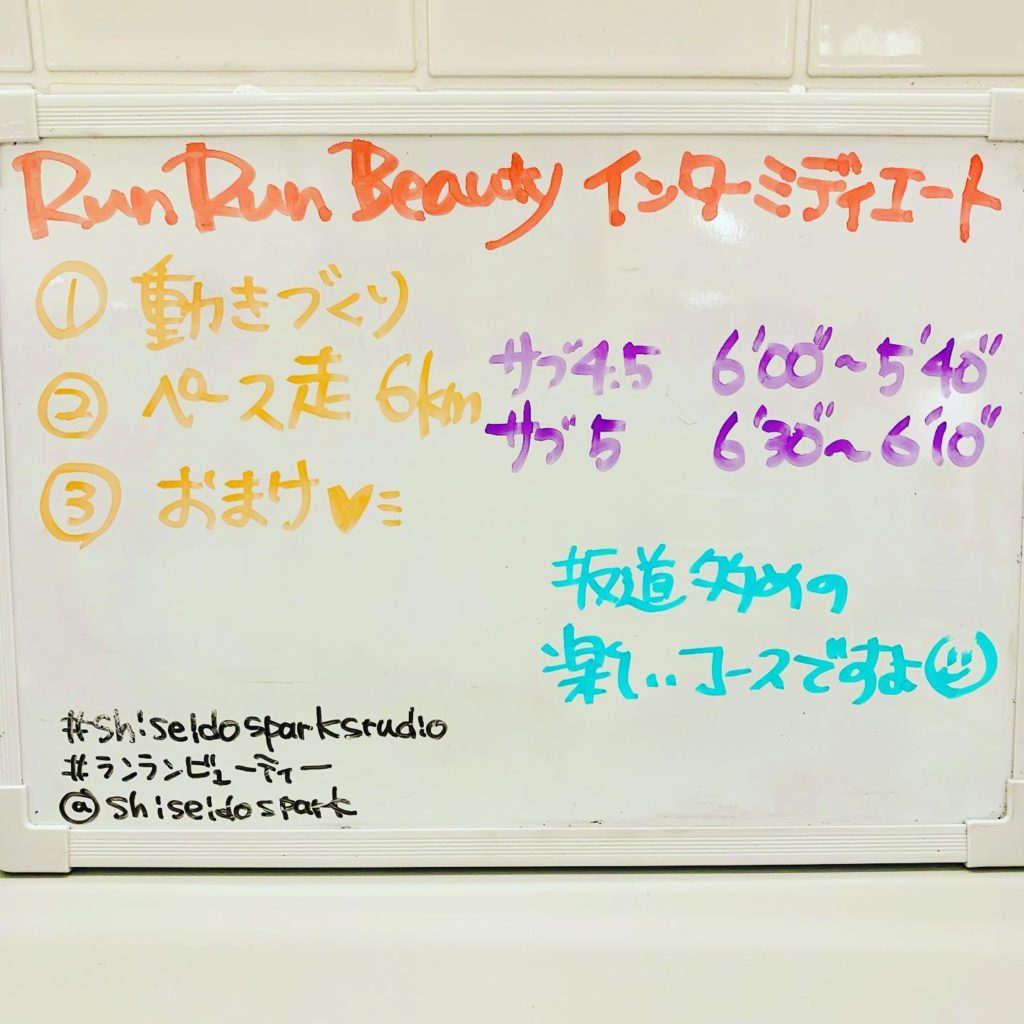 Run Run Beauty インターミディエート
① 動きづくり
② ペース走 6km
サブ4.5 6'00"~5'40"
サブ5 6'30"~6'10"
③ おまけ♥
坂道多めの
楽しいコースですよ☺
#shiseidosparksrudio
#ランランビューティー
@shiseidospark